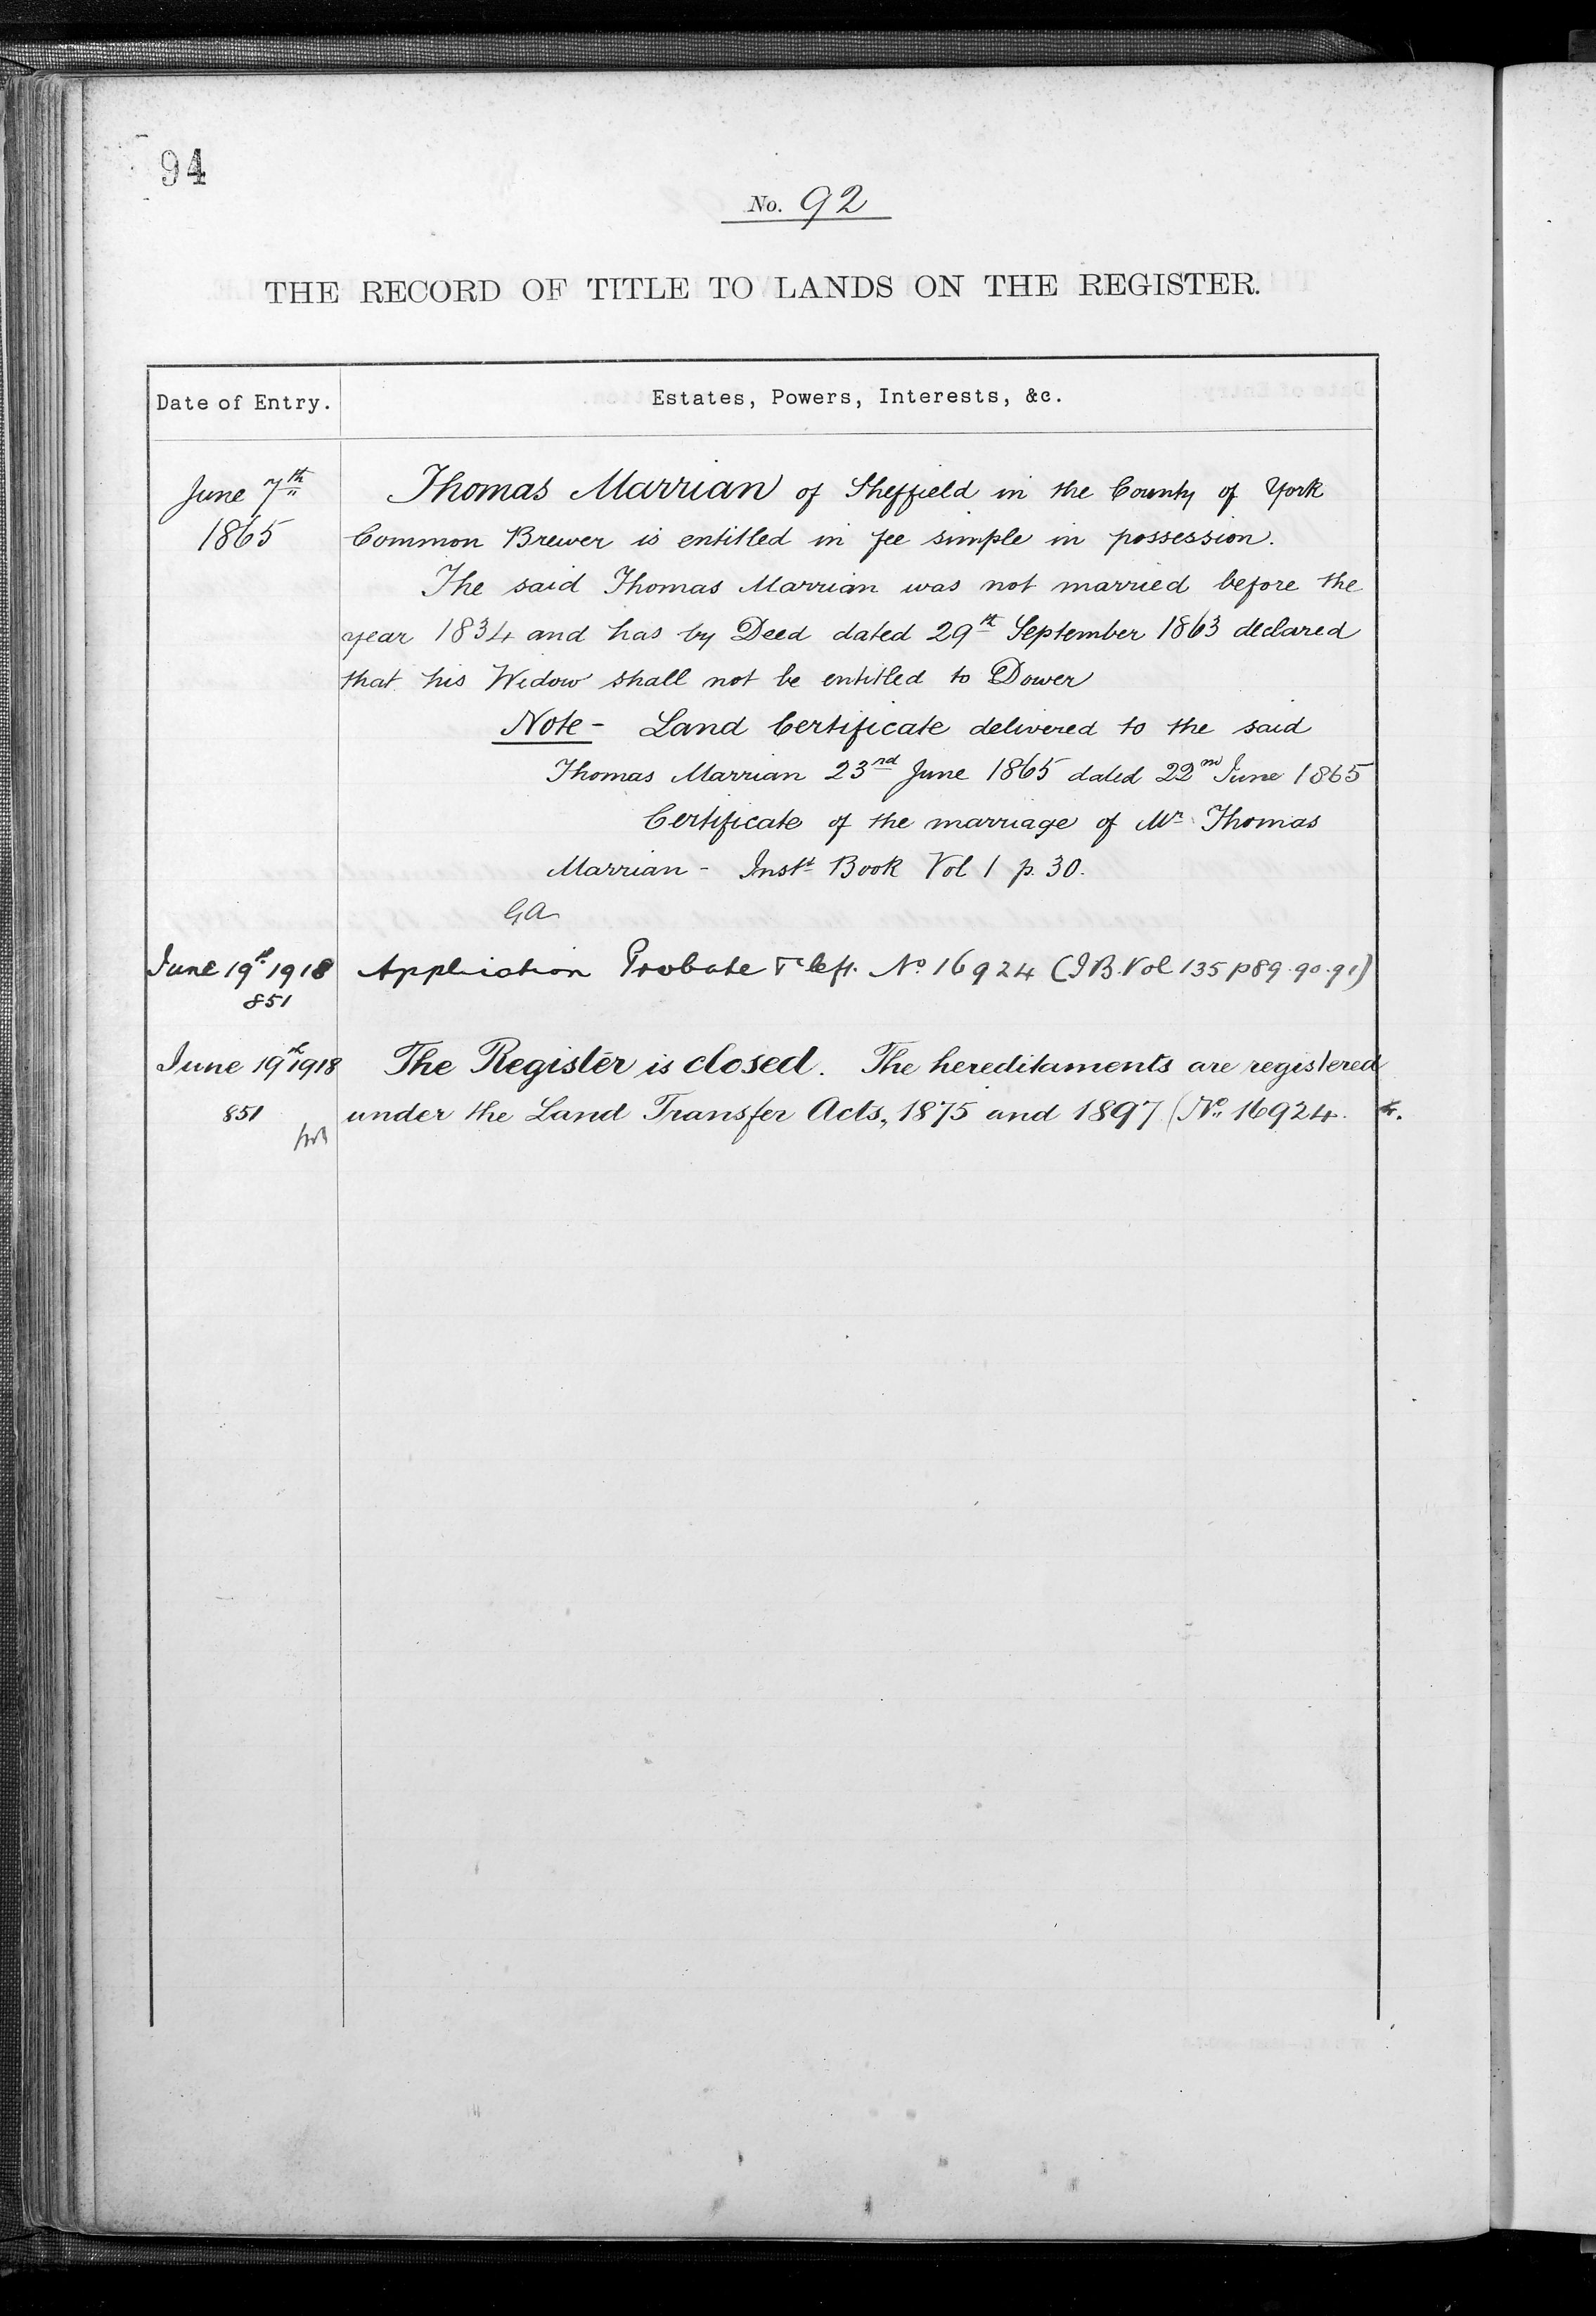 94
No. 92
THE RECORD OF TITLE TO LANDS ON THE REGISTER.
Date of Entry. Estates, Powers, Interests, &c.
June 7th Thomas Marrian of Sheffield in the County of York
1865 Common Brewer is entitled in fee simple in possession.
The said Thomas Marrian was not married before the
year 1834 and has by Deed dated 29th September 1863 declared
that his Widow shall not be entitled to Dower
Note - Land Certificate delivered to the said
Thomas Marrian 23rd June 1865 dated 22nd June 1865
Certificate of the marriage of Mr Thomas
Marrian - Instt Book Vol 1 p. 30.
GA
June 19th 1918 Application Probate left. No 16924 (IB. Vol 135 p89.90.91)
851
June 19th 1918 The Register is closed. The hereditaments are registered
851 under the Land Transfer Acts, 1875 and 1897 (No. 16924.